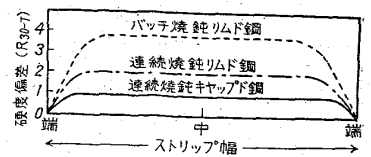 硬度偏差 (R30-T)
4
3
2
1
0
バッチ焼鈍リムド鋼
連続焼鈍リムド鋼
連続焼鈍キャップド鋼
端 中 端
ストリップ幅